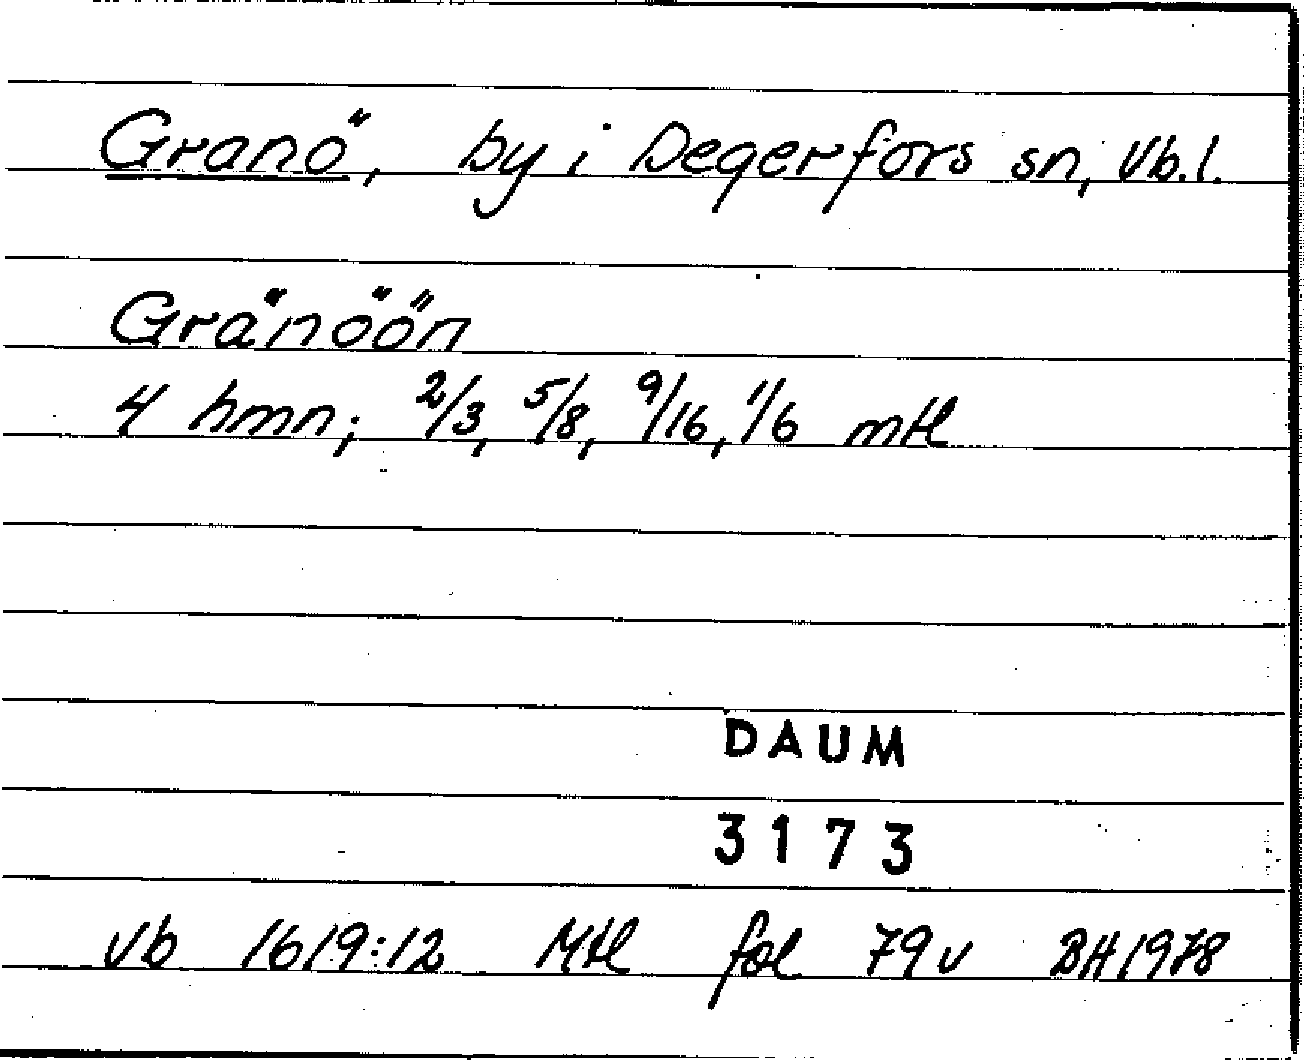 Granö, by i Degerfors sn, Vb.l.
Gränöön
4 hmn; 2/3, 5/8, 9/16, 1/6 mtl
DAUM
3173
Vb 1619:12 Mtl fol 79v BH1978